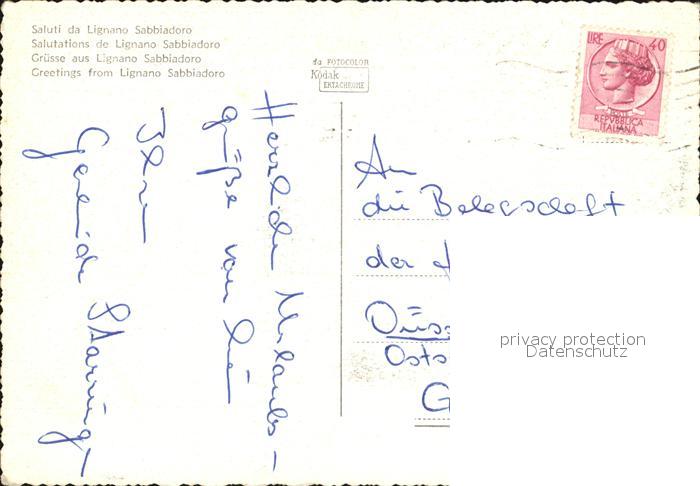 Saluti da Lignano Sabbiadoro
Salutations de Lignano Sabbiadoro
Grüsse aus Lignano Sabbiadoro
Greetings from Lignano Sabbiadoro
da FOTOCOLOR
Kodak
EKTACHROME
LIRE 40
POSTE
REPVBBLICA
ITALIANA
Herzliche Urlaubs-
grüße von hier
Ihre
An
die Belegschaft
der
Düss
Osts
G
privacy protection
Datenschutz